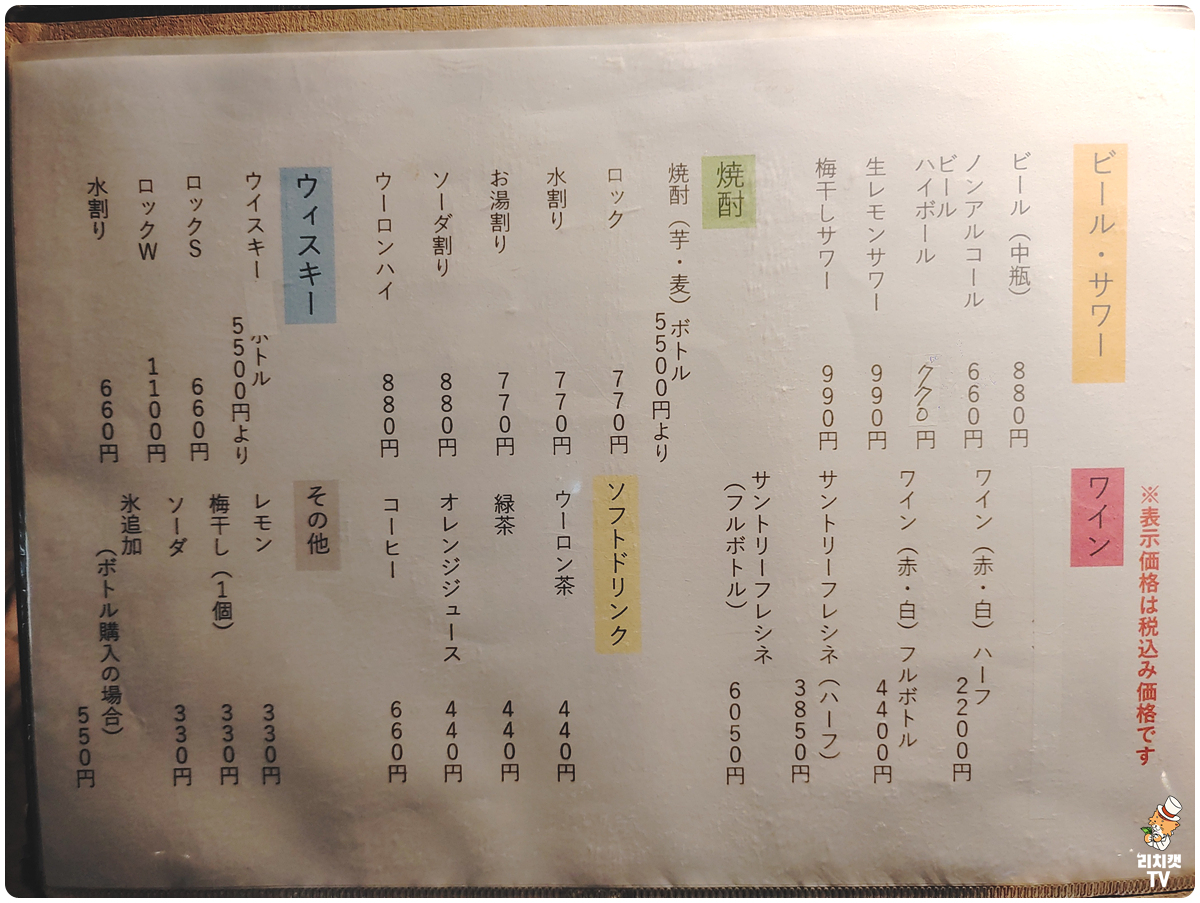 ※表示価格は税込み価格です
ビール・サワー
ビール（中瓶） 880円
ノンアルコール
ビール 660円
ハイボール 770円
生レモンサワー 990円
梅干しサワー 990円
焼酎
焼酎（芋・麦）ボトル
5500円より
ロック 770円
水割り 770円
お湯割り 770円
ソーダ割り 880円
ウーロンハイ 880円
ウィスキー
ウイスキー ボトル
5500円より
ロックS 660円
ロックW 1100円
水割り 660円
ワイン
ワイン（赤・白）ハーフ
2200円
ワイン（赤・白）フルボトル
4400円
サントリーフレシネ（ハーフ）
3850円
サントリーフレシネ
（フルボトル） 6050円
ソフトドリンク
ウーロン茶 440円
緑茶 440円
オレンジジュース 440円
コーヒー 660円
その他
レモン 330円
梅干し（1個） 330円
ソーダ 330円
氷追加
（ボトル購入の場合）
550円
리치캣
TV